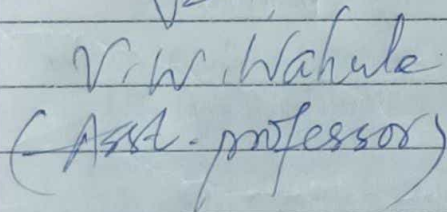 V. W. Wahule
(Asst. professor)